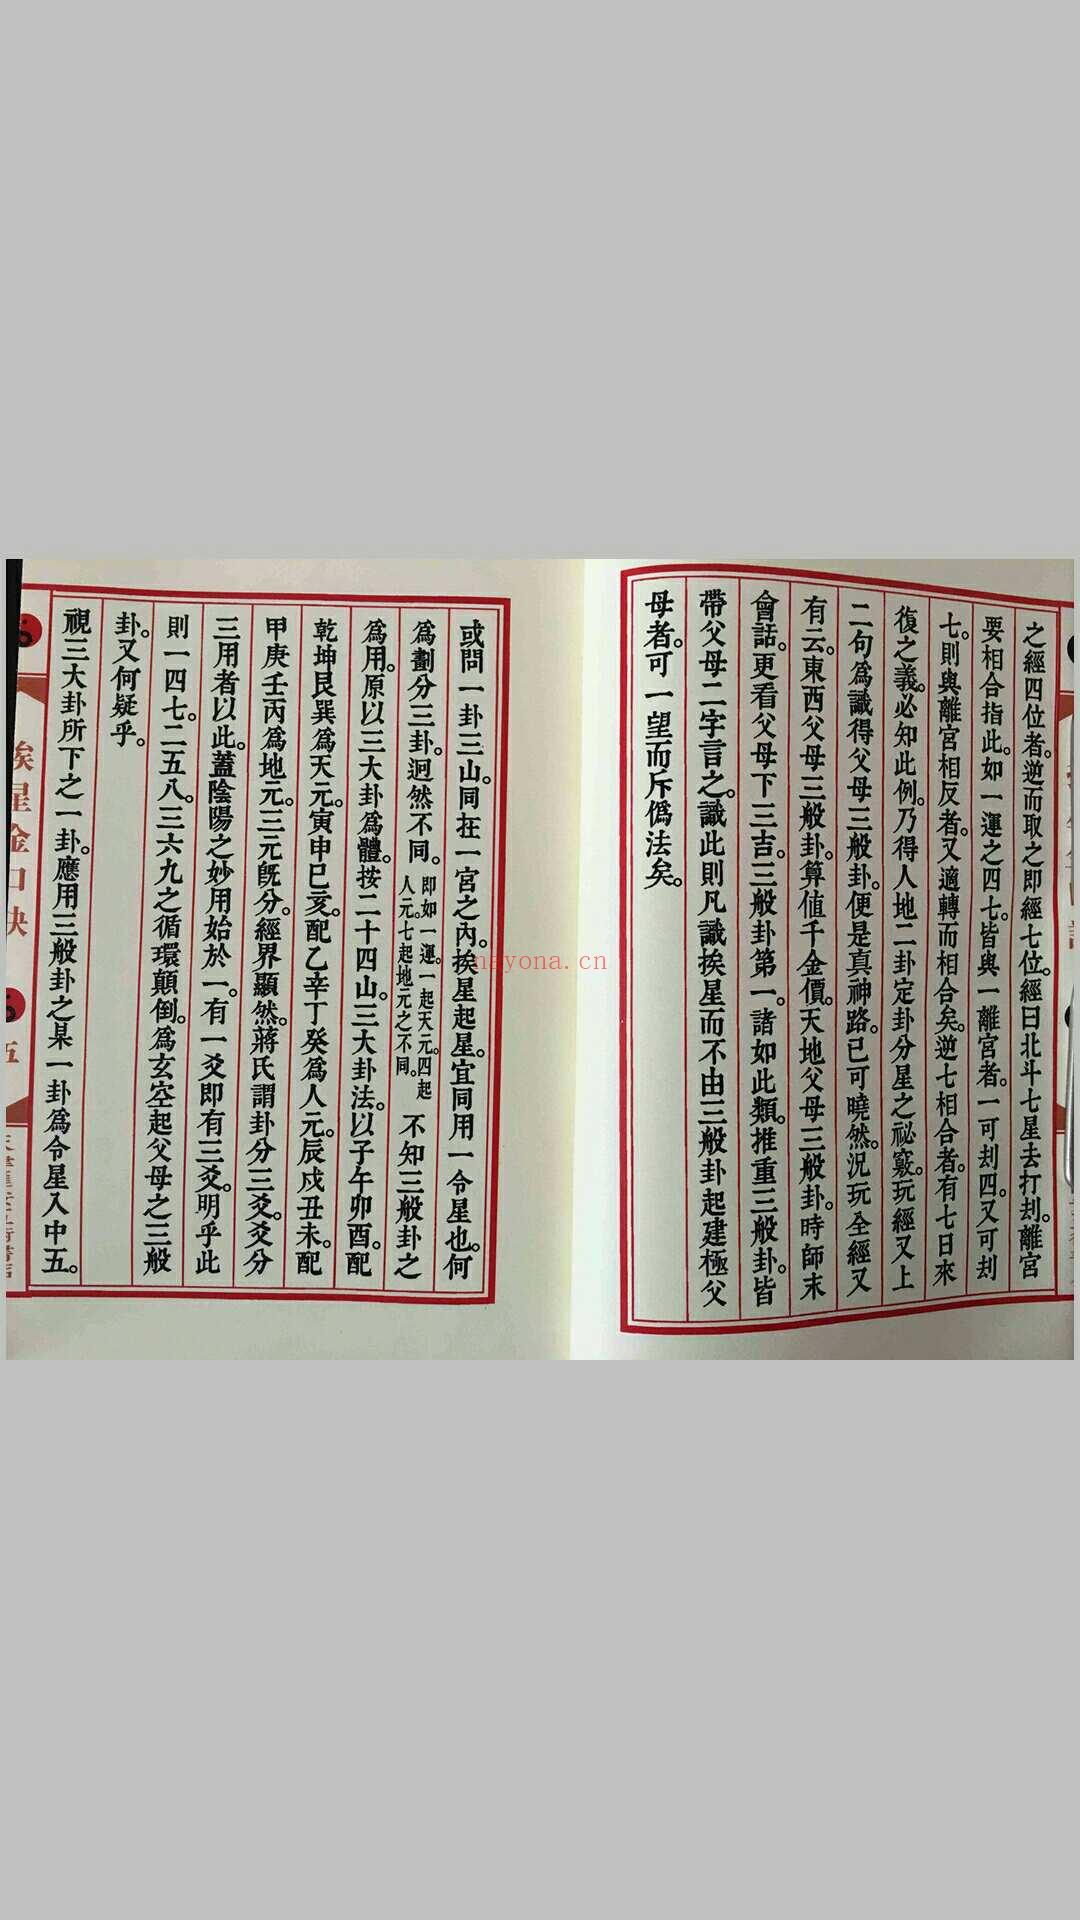 之經四位者。逆而取之即經七位。經曰北斗七星去打刦。離宮
要相合指此。如一運之四七。皆與一離宮者。一可刦四。又可刦
七。則與離宮相反者。又適轉而相合矣。逆七相合者。有七日來
復之義。必知此例。乃得人地二卦定卦分星之祕竅。玩經又上
二句爲識得父母三般卦。便是真神路。已可曉然。況玩全經又
有云。東西父母三般卦。算值千金價。天地父母三般卦。時師未
會話。更看父母下三吉。三般卦第一。諸如此類。推重三般卦。皆
帶父母二字言之。識此則凡識挨星而不由三般卦起建極父
母者。可一望而斥僞法矣。
或問一卦三山。同在一宮之內。挨星起星。宜同用一令星也。何
爲劃分三卦。迥然不同。即如一運。一起天元。四起人元。七起地元之不同。不知三般卦之
爲用。原以三大卦爲體。按二十四山。三大卦法。以子午卯酉。配
乾坤艮巽爲天元。寅申巳亥。配乙辛丁癸爲人元。辰戌丑未。配
甲庚壬丙爲地元。三元旣分。經界顯然。蔣氏謂卦分三爻。爻分
三用者以此。蓋陰陽之妙用始於一。有一爻即有三爻。明乎此
則一四七。二五八。三六九之循環顛倒。爲玄空起父母之三般
卦。又何疑乎。
視三大卦所下之一卦。應用三般卦之某一卦爲令星入中五。
挨星金口訣
伍
nayona.cn